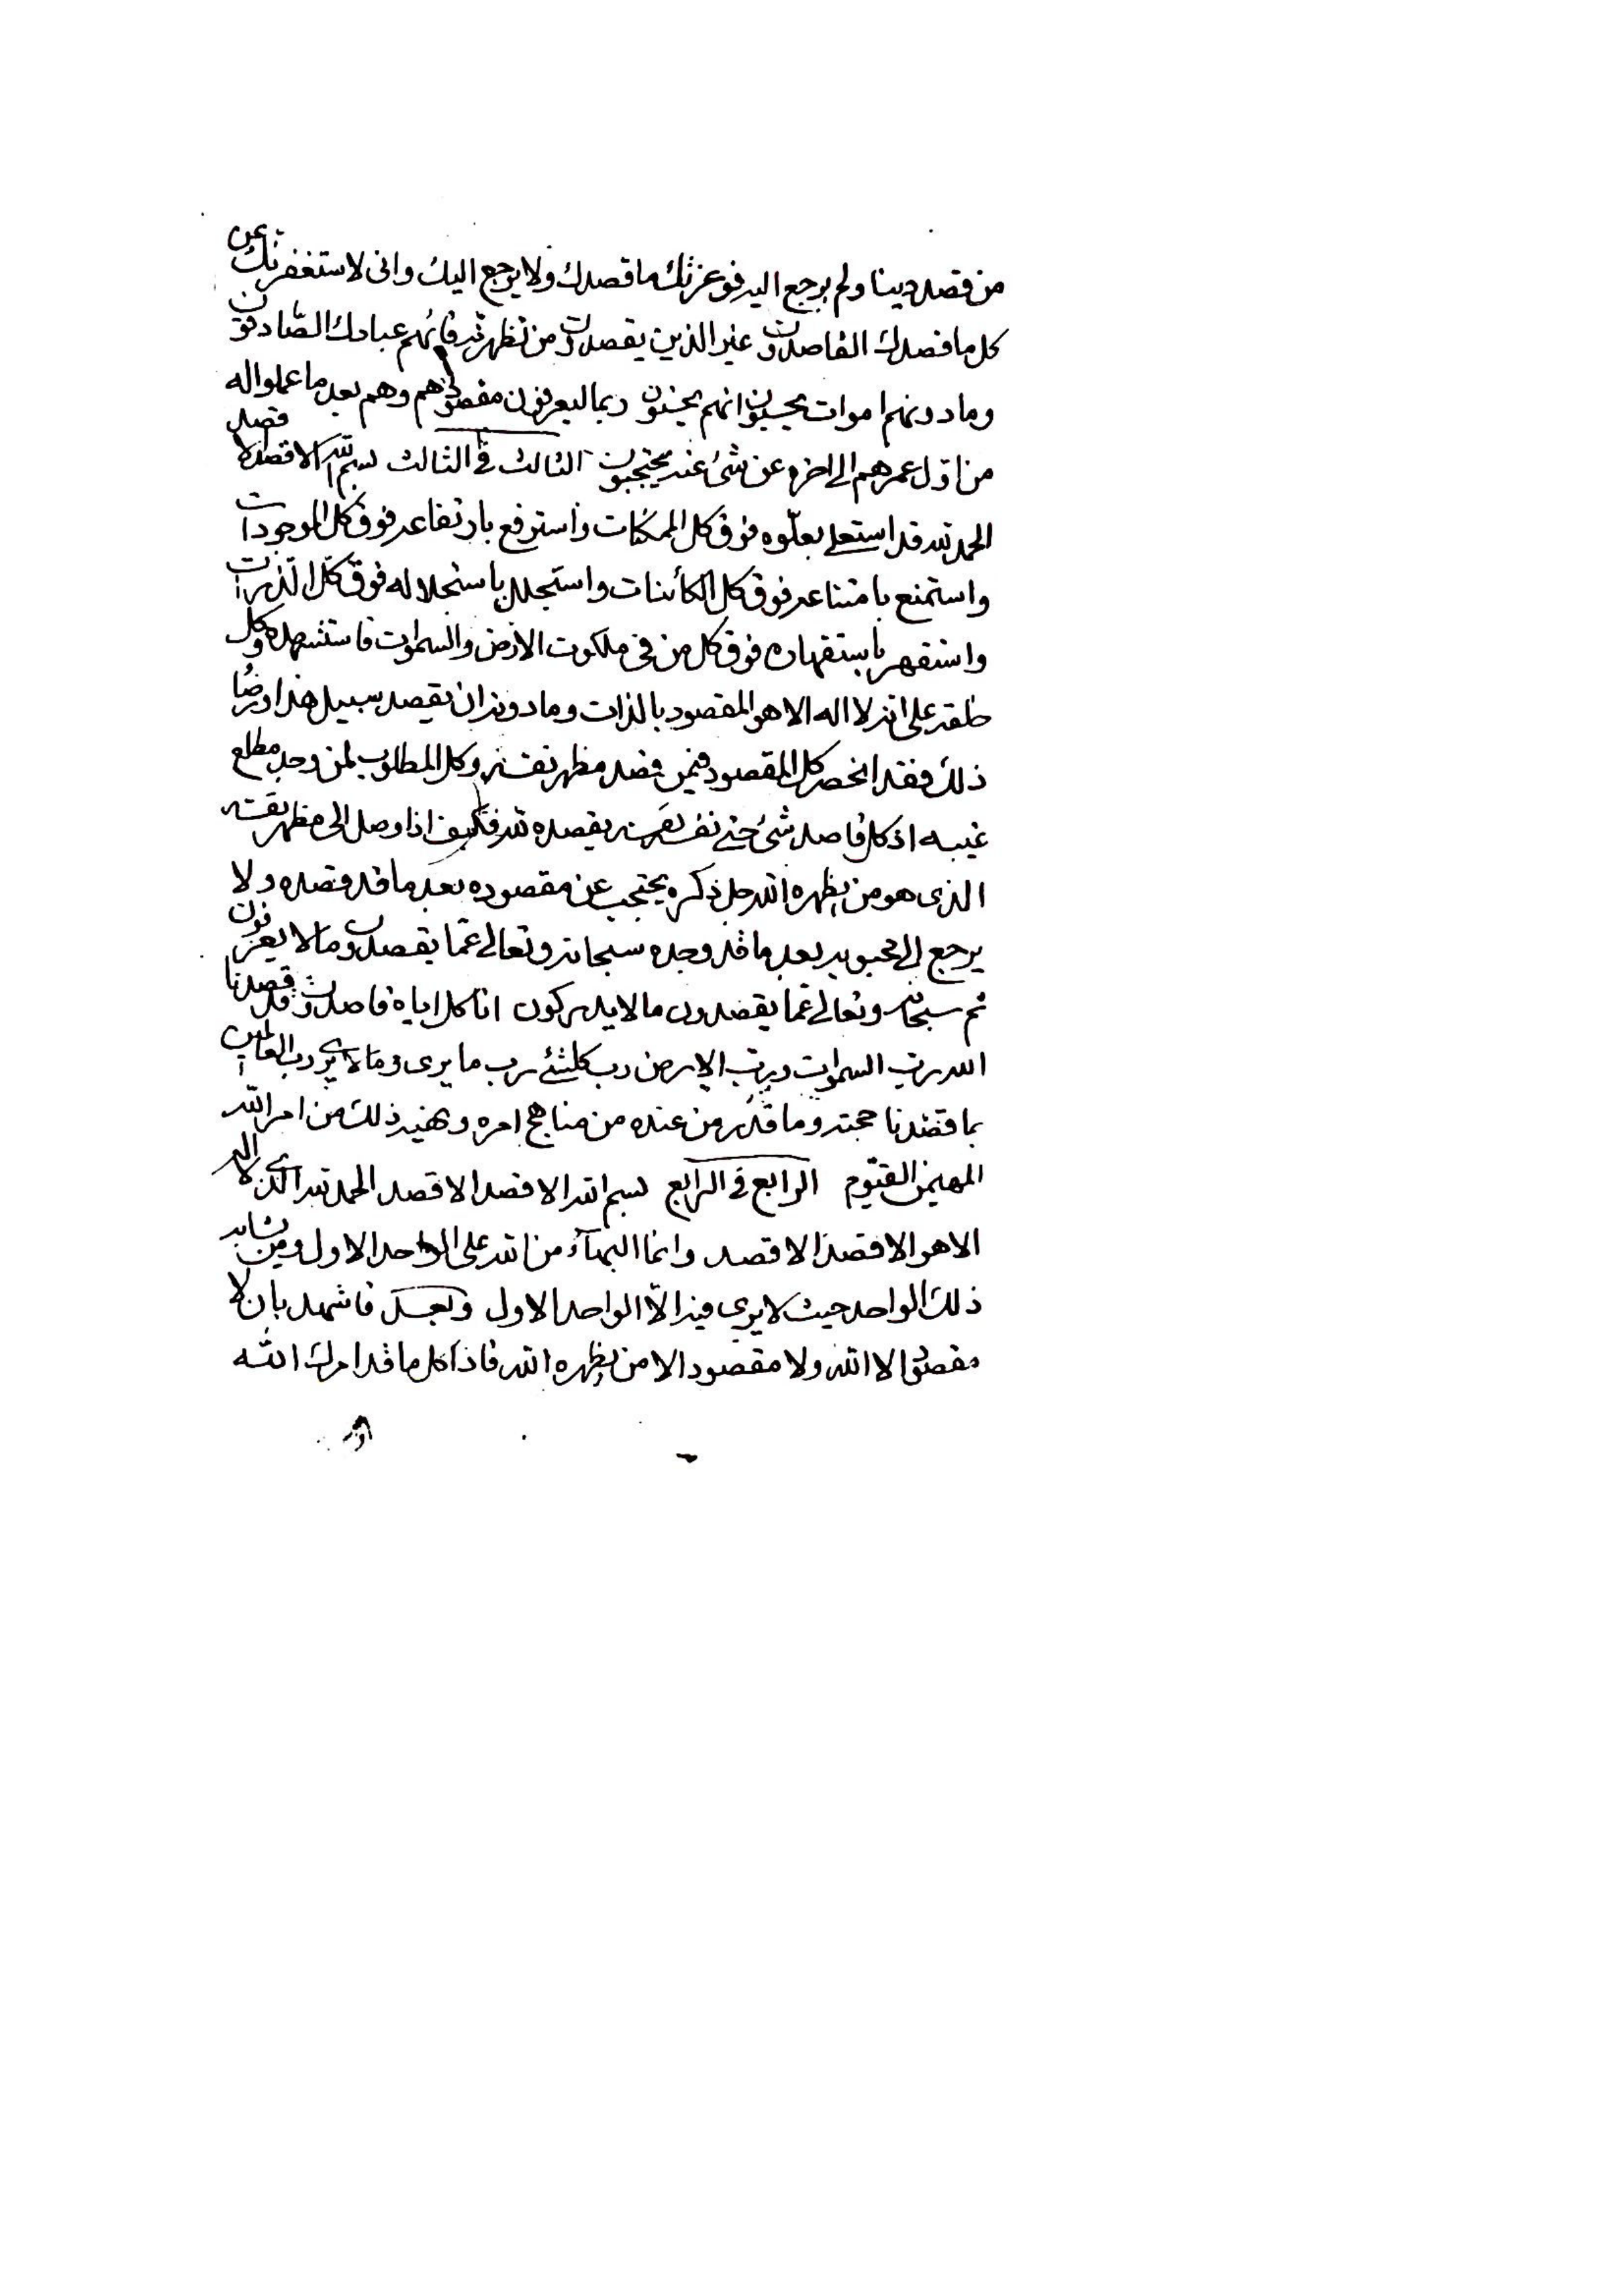 من قصد دينا ولم يرجع اليه فوعزتك ما قصدك ولا يرجع اليك وانى لاستغفرنك عن
كل ما قصدك القاصدون غير الذين يقصدون من تظهرنه فانهم عبادك الصادقون
وما دونهم اموات يحسبون انهم يحسنون وبما ليعرفون مقصودهم وهم بعد ما عملوا له
من اول عمرهم الى اخره عن شئ عنده يحتجبون الثالث فى الثالث بسم الله الاقصد الاقصد
الحمد لله قد استعلى بعلوه فوق كل الممكنات واسترفع بارتفاعه فوق كل الموجودات
واستمنع بامتناعه فوق كل الكائنات واستجلل باستجلاله فوق كل الذرات
واستقهر باستقهاره فوق كل من فى ملكوت الارض والسموات فاستشهده وكل
خلقه على انه لا اله الا هو المقصود بالذات وما دونه ان يقصد سبيل هذا ورضا
ذلك فقد انحصر كل المقصود فيمن قصد مظهر نفسه وكل المطلوب لمن وجد مطلع
غيبه اذ كل قاصد شئ حتى نفس نفسه يقصده لله فكيف اذا وصل الى مظهر نفسه
الذى هو من يظهره الله جل ذكره يحتجب عن مقصوده بعد ما قد قصده ولا
يرجع الى محبوبه بعد ما قد وجده سبحانه وتعالى عما يقصدون ومالا يعرفون
ثم سبحانه وتعالى عما يقصدون مالا يدركون انا كل اياه قاصدون قل قصدنا
الله رب السموات ورب الارض رب كلشئ رب ما يرى وما لا يرى رب العالمين
بما قصدنا حجته وما قدر من عنده من مناهج امره وبهذ ذلك من امر الله
المهيمن القيوم الرابع فى الرابع بسم الله الاقصد الاقصد الحمد لله الذى لا اله
الا هو الاقصد الاقصد وانما البهاء من الله على الواحد الاول ومن يشابه
ذلك الواحد حيث لا يرى فيه الا الواحد الاول وبعد فاشهد بان لا
مقصود الا الله ولا مقصود الا من يظهره الله فاذا كل ما قد امرك الله